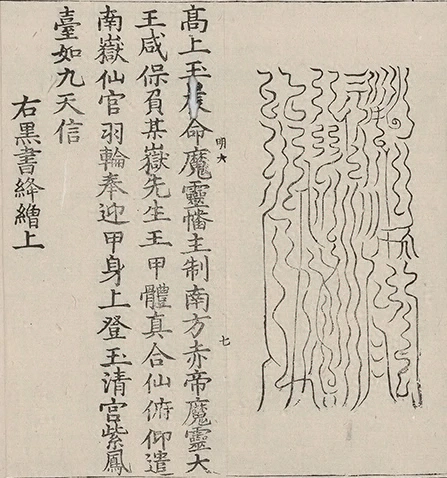 明六
七
髙上玉晨命魔靈幡主制南方赤帝魔靈大
王咸保負某嶽先生王甲體真合仙俯仰遣
南嶽仙官羽輪奉迎甲身上登玉清宮紫鳳
臺如九天信
右黒書絳繒上